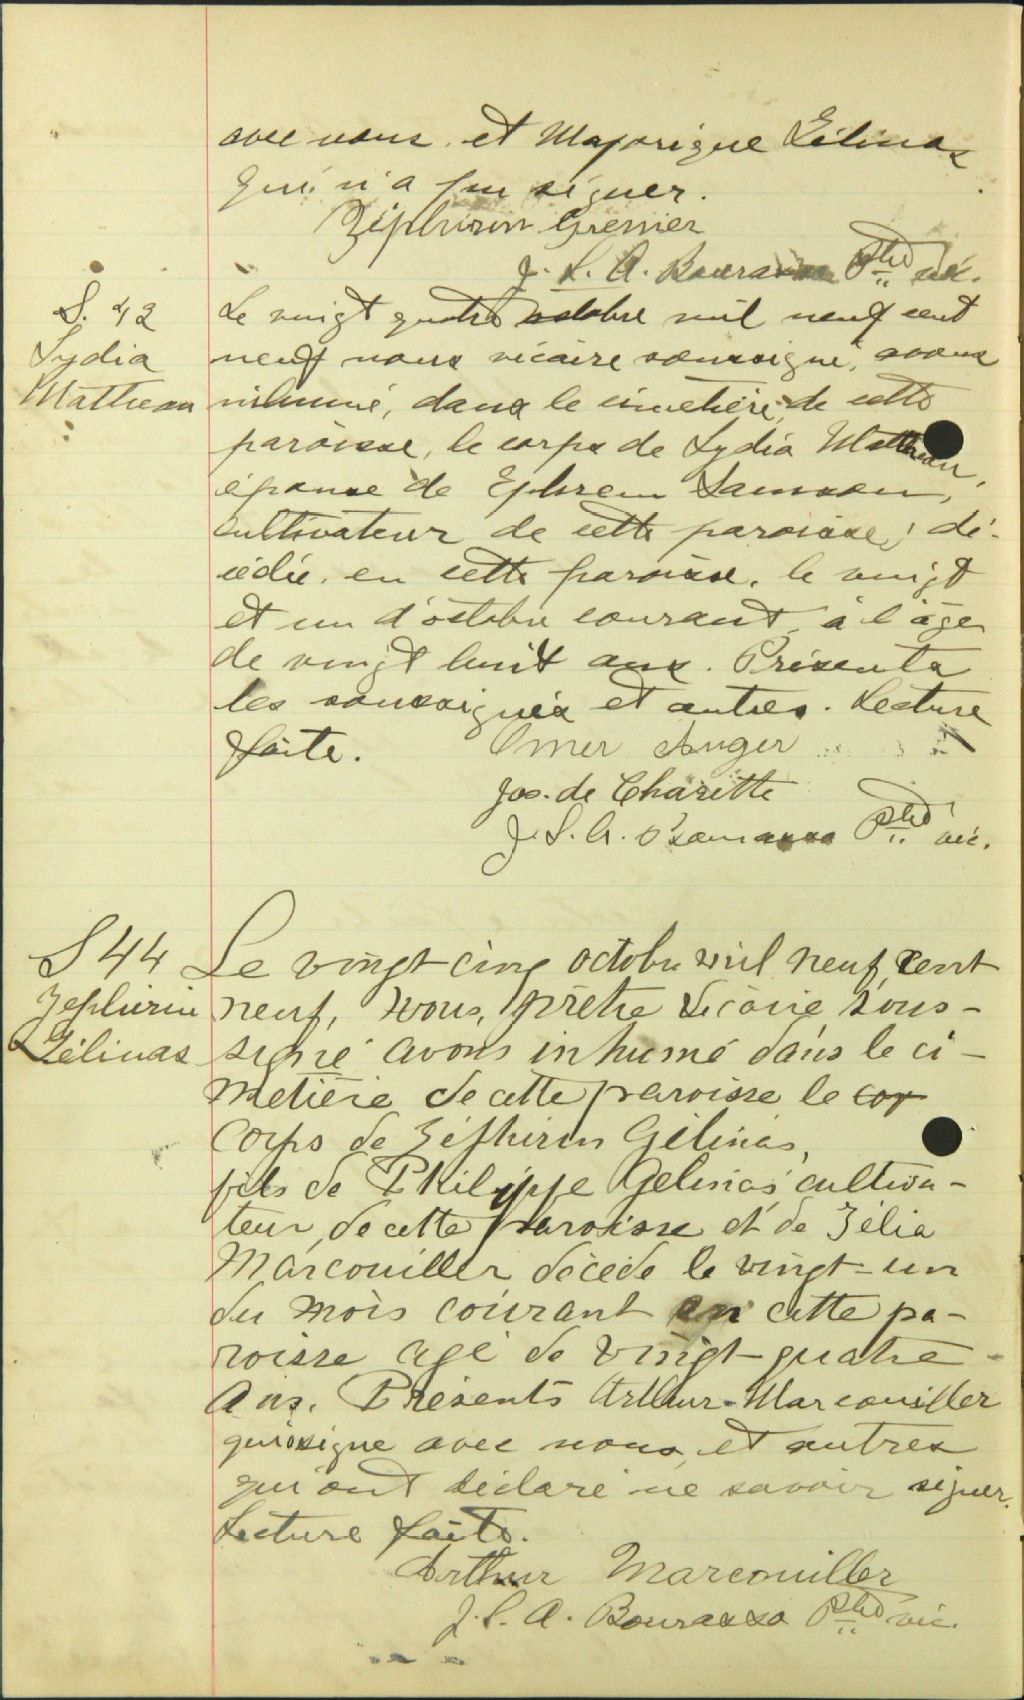 avec nous, et Majorique Gélinas
qui n'a pu signer.
Zéphirin Grenier
J. L. A. Bourassa Ptre vic.
S. 42
Lydia
Mattheau
Le vingt quatre octobre mil neuf cent
neuf nous vicaire soussigné, avons
inhumé, dans le cimetière de cette
paroisse, le corps de Lydia Mattheau,
épouse de Ephrem Samson,
cultivateur de cette paroisse, dé-
cédée, en cette paroisse, le vingt
et un d'octobre courant, à l'âge
de vingt huit ans. Présents
les soussignés et autres. Lecture
faite.
Omer Auger
Jos. de Charette
J. L. A. Bourassa Ptre vic.
S 44
Zephirin
Gélinas
Le vingt-cinq octobre mil neuf cent
neuf, nous, prêtre vicaire sous-
signé avons inhumé dans le ci-
metière de cette paroisse le cor
corps de Zéphirin Gélinas,
fils de Philippe Gelinas cultiva-
teur, de cette paroisse et de Zélia
Marcouiller décédé le vingt-un
du mois courant en cette pa-
roisse agé de vingt-quatre
ans. Présents Arthur Marcouiller
qui signe avec nous, et autres
qui ont déclaré ne savoir signer.
Lecture faite.
Arthur Marcouiller
J. L. A. Bourassa Ptre vic.